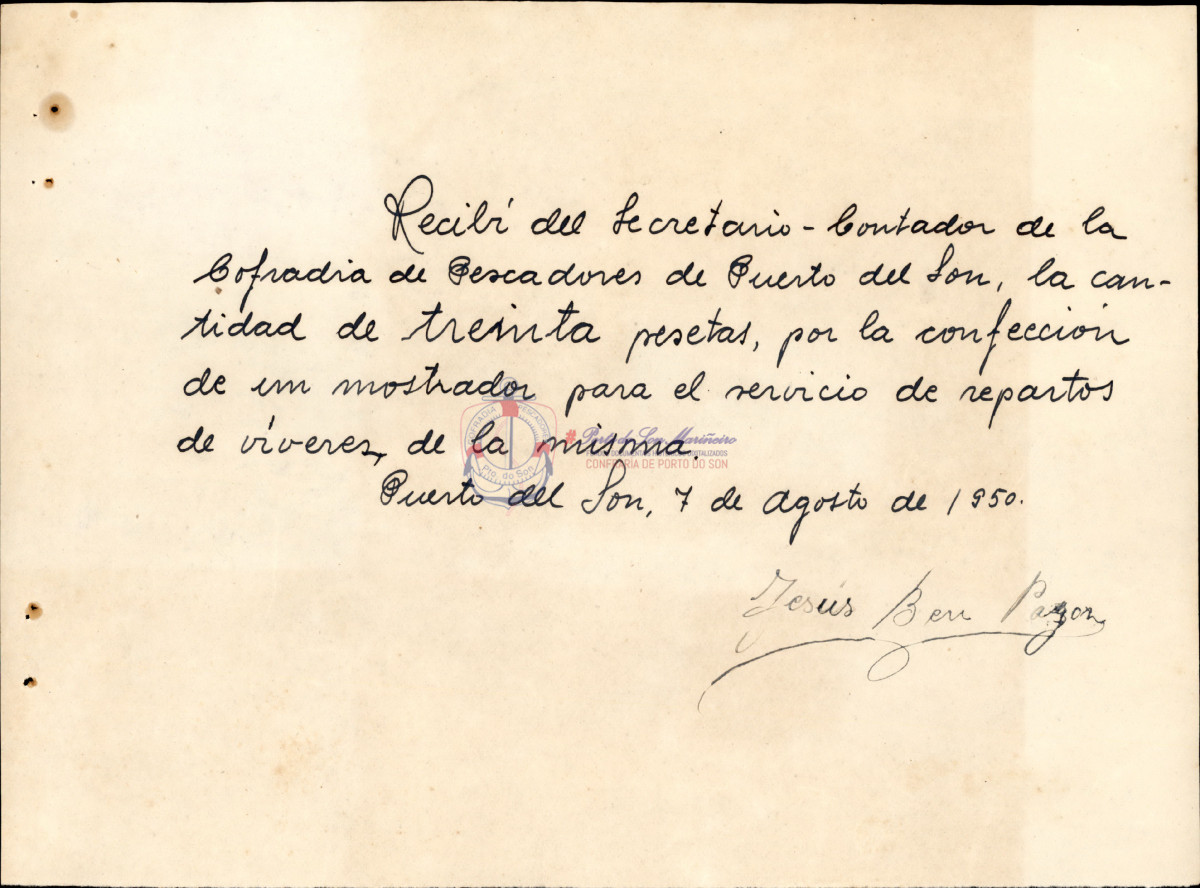 Recibí del Secretario-Contador de la
Cofradia de Pescadores de Puerto del Son, la can-
tidad de treinta pesetas, por la confección
de un mostrador para el servicio de repartos
de víveres, de la misma.
Puerto del Son, 7 de agosto de 1950.
Jesús Ben
COFRADIA PESCADORES
Pto. do Son
# Porto do Son Mariñeiro
CONFRARIA DE PORTO DO SON